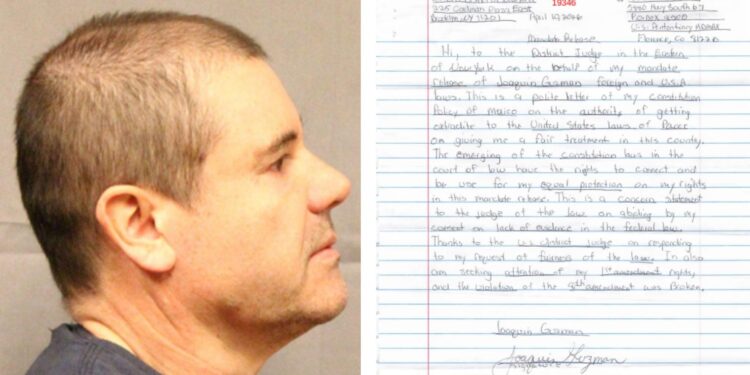 19346
225 Cadman Plaza East
Brooklyn, NY 11201 April
Po Box 8500
U.S. Penitentiary ADMAX
Florence, Co 81226
Mandate Release
Hi, to the District Judge in the
of New York on the behalf of my mandate
release of Joaquin Guzman foreign and U.S.A
laws. This is a polite letter of my constitution
Policy of on the authority of getting
to the United States laws of Peace
on giving me a fair treatment in this county.
The emerging of the constitution laws in the
court of law have the rights to connect and
be use for my equal protection on my rights
in this mandate release. This is a concern statement
to the judge of the law on abiding by my
consent on lack of evidence in the federal law.
Thanks to the U.S. District judge on responding
to my request of fairness of the law. In also
am seeking attention of my 1st amendment rights,
and the violation of the 8th amendment was Broken.
Joaquin Guzman
Joaquin Guzman
Signature